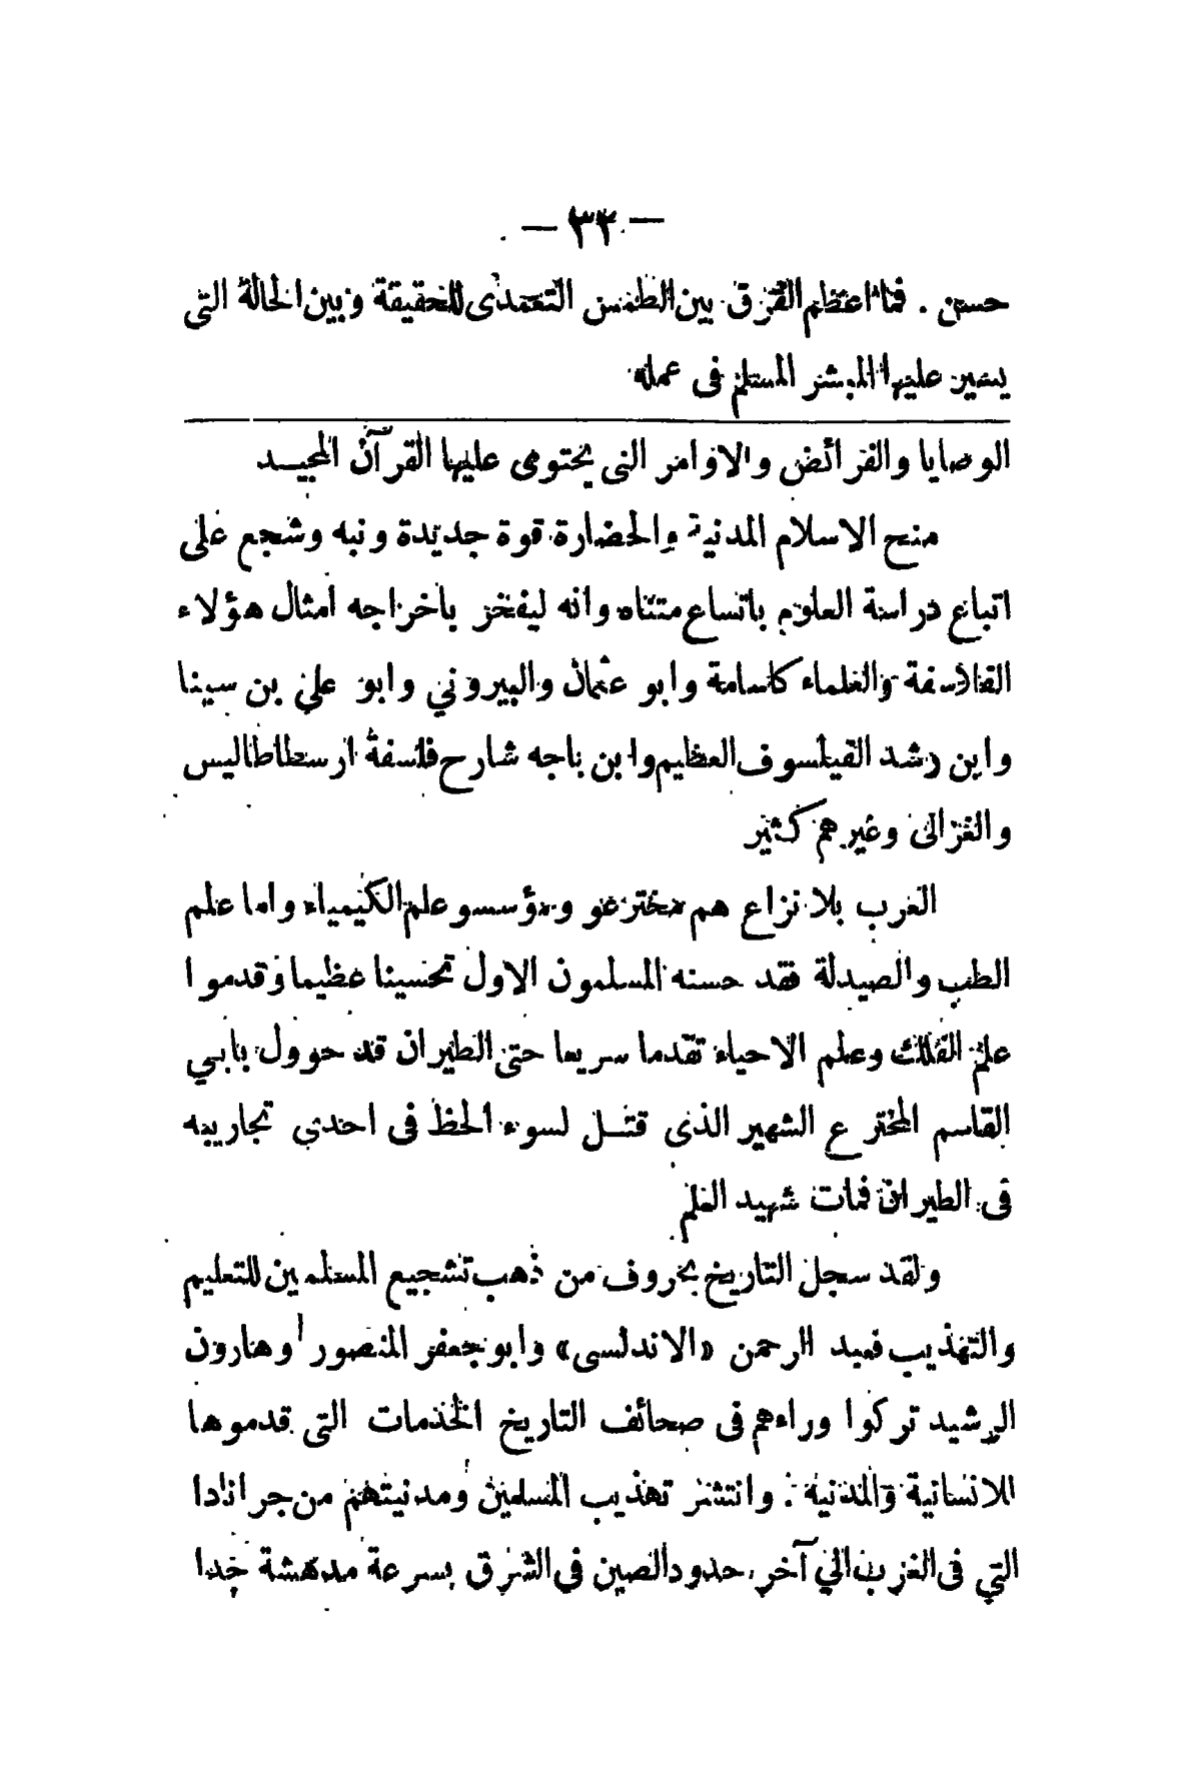 — ٣٣ —
حسن . فما اعظم الفرق بين الطمس التعمدى للحقيقة وبين الحالة التى
يسير عليها المبشر المسلم فى عمله
الوصايا والفرائض والاوامر التى يحتوى عليها القرآن المجيــد
منح الاسلام المدنية والحضارة قوة جديدة ونبه وشجع على
اتباع دراسة العلوم باتساع متناه وانه ليفتخر باخراجه امثال هؤلاء
الفلاسفة والعلماء كاسامة وابو عثمان والبيرونى وابو على بن سينا
وابن رشد الفيلسوف العظيم وابن باجه شارح فلسفة ارسطاطاليس
والغزالى وغيرهم كثير
العرب بلا نزاع هم مخترعو ومؤسسو علم الكيمياء واما علم
الطب والصيدلة فقد حسنه المسلمون الاول تحسينا عظيما وقدموا
علم الفلك وعلم الاحياء تقدما سريعا حتى الطيران قد حوول بابي
القاسم المخترع الشهير الذى قتــل لسوء الحظ فى احدى تجاريبه
فى الطيران فمات شهيد العلم
ولقد سجل التاريخ بحروف من ذهب تشجيع المسلمين للتعليم
والتهذيب فعبد الرحمن «الاندلسى» وابو جعفر المنصور وهارون
الرشيد تركوا وراءهم فى صحائف التاريخ الخدمات التى قدموها
للانسانية والمدنية . وانتشر تهذيب المسلمين ومدنيتهم من جرانادا
التي فى الغرب الي آخر حدود الصين فى الشرق بسرعة مدهشة جدا